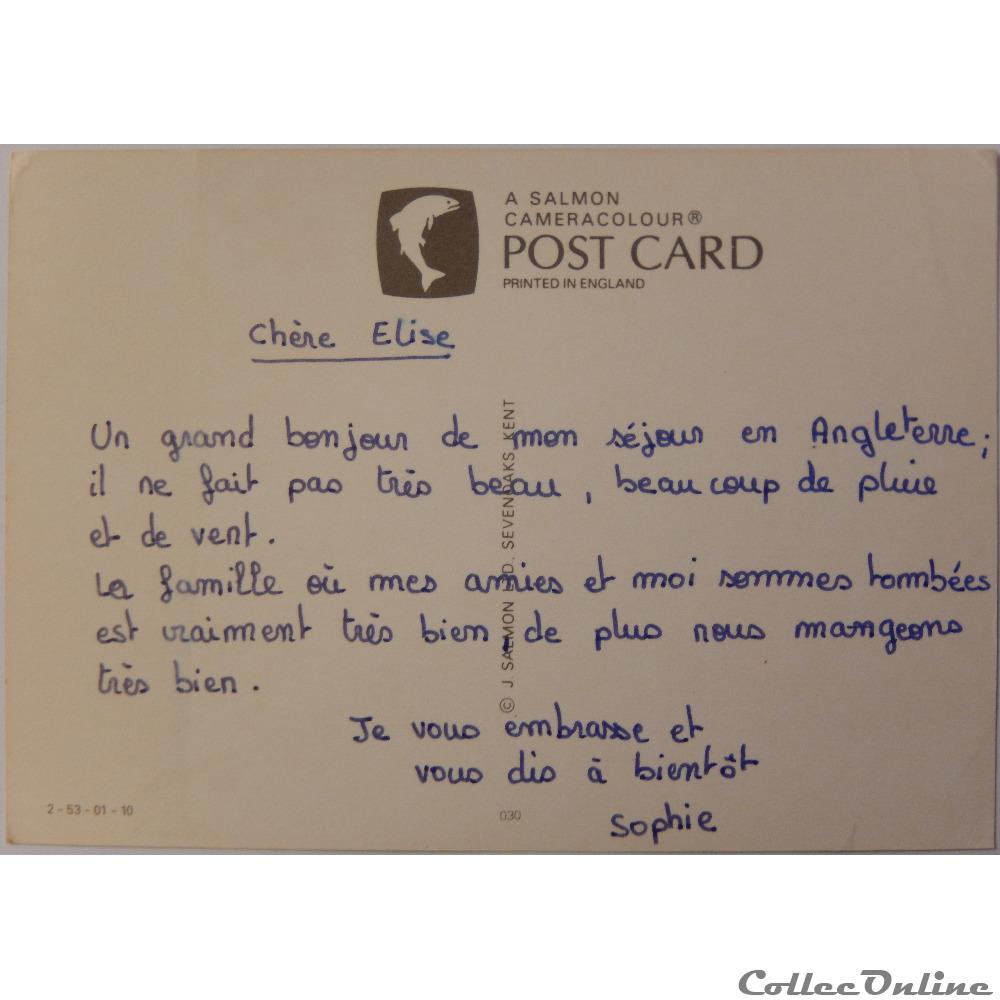 A SALMON
CAMERACOLOUR®
POST CARD
PRINTED IN ENGLAND
Chère Elise
Un grand bonjour de mon séjour en Angleterre;
il ne fait pas très beau, beaucoup de pluie
et de vent.
La famille où mes amies et moi sommes tombées
est vraiment très bien, de plus nous mangeons
très bien.
Je vous embrasse et
vous dis à bientôt
Sophie
© J. SALMON LTD., SEVENOAKS, KENT
2-53-01-10
030
CollecOnline